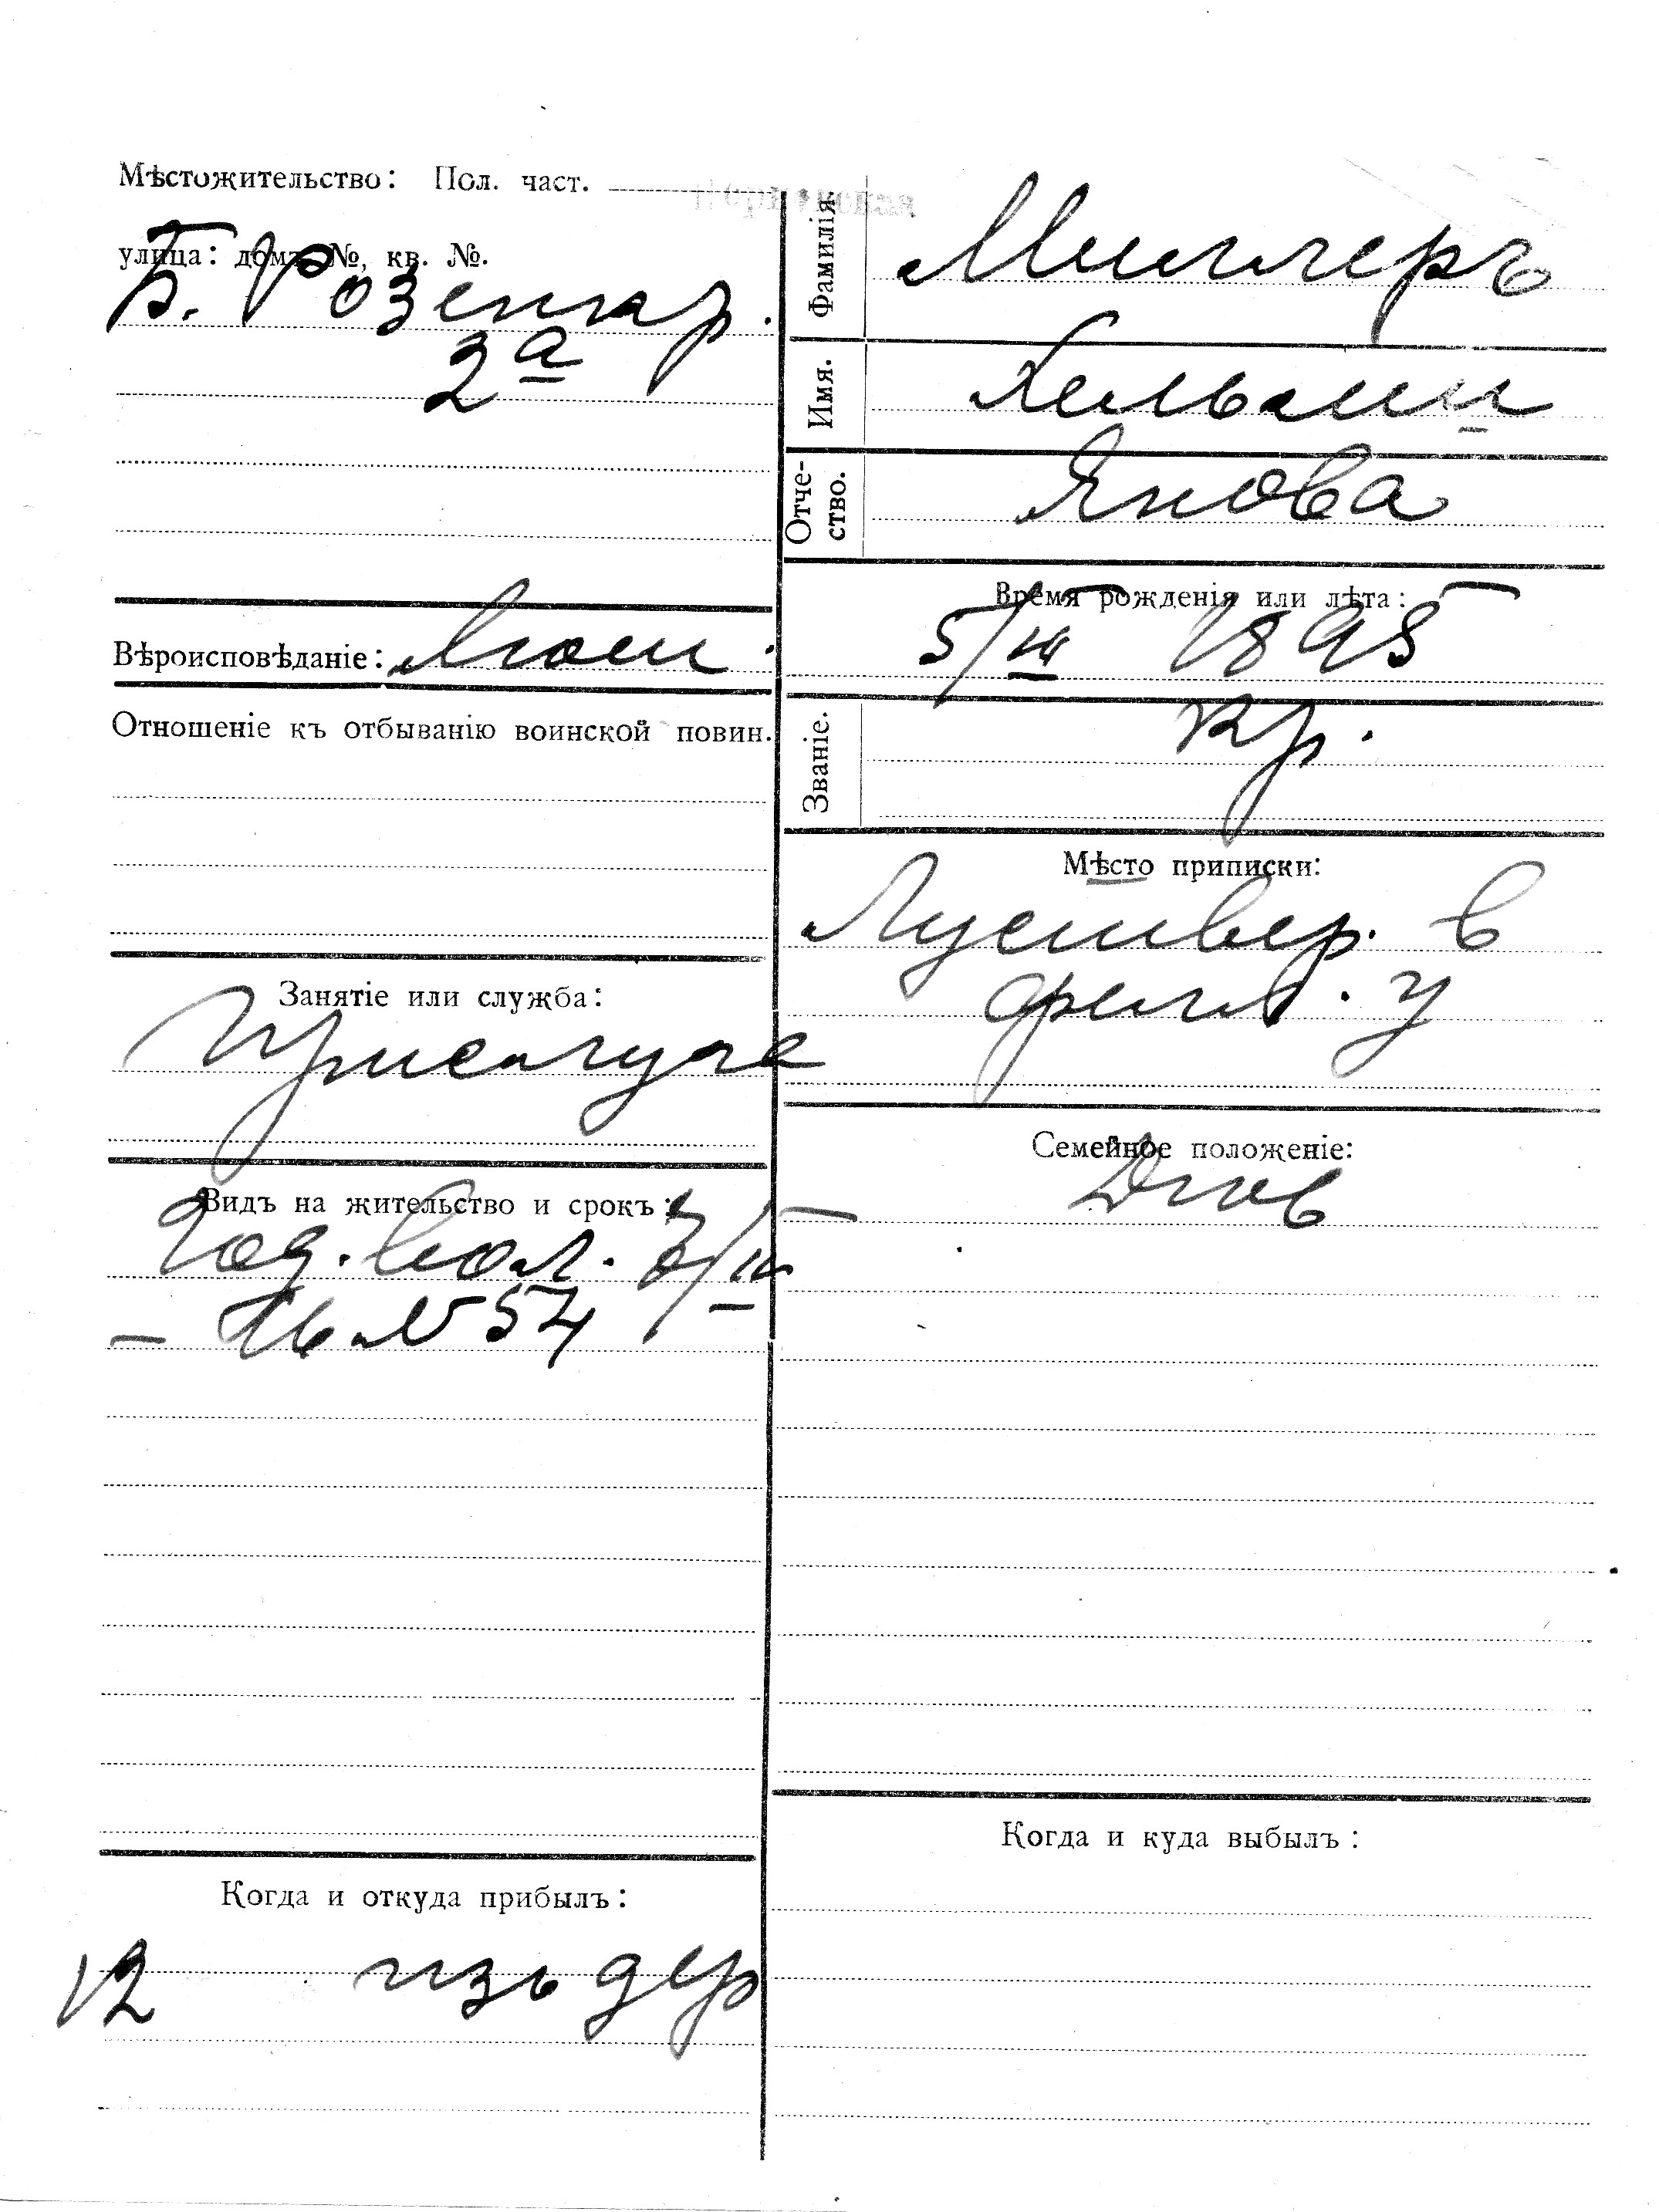 Мѣстожительство: Пол. част.
улица: домъ №, кв. №.
Б. Розенкр.
2а
Вѣроисповѣданіе: Лют.
Отношеніе къ отбыванію воинской повин.
Занятіе или служба:
Прислуга
Видъ на жительство и срокъ:
Год. вол. 3/III
№ 54
Когда и откуда прибылъ:
12 изъ дер
Фамилія.
Миллеръ
Имя.
Отче-
ство.
Янова
Время рожденія или лѣта:
5/III 1895
Званіе.
кр.
Мѣсто приписки:
в
у
Семейное положеніе:
Дѣв
Когда и куда выбылъ: